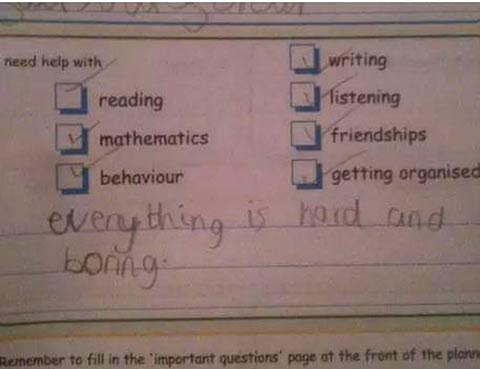 need help with
reading
mathematics
behaviour
writing
listening
friendships
getting organised
everything is hard and
boring.
Remember to fill in the 'important questions' page at the front of the